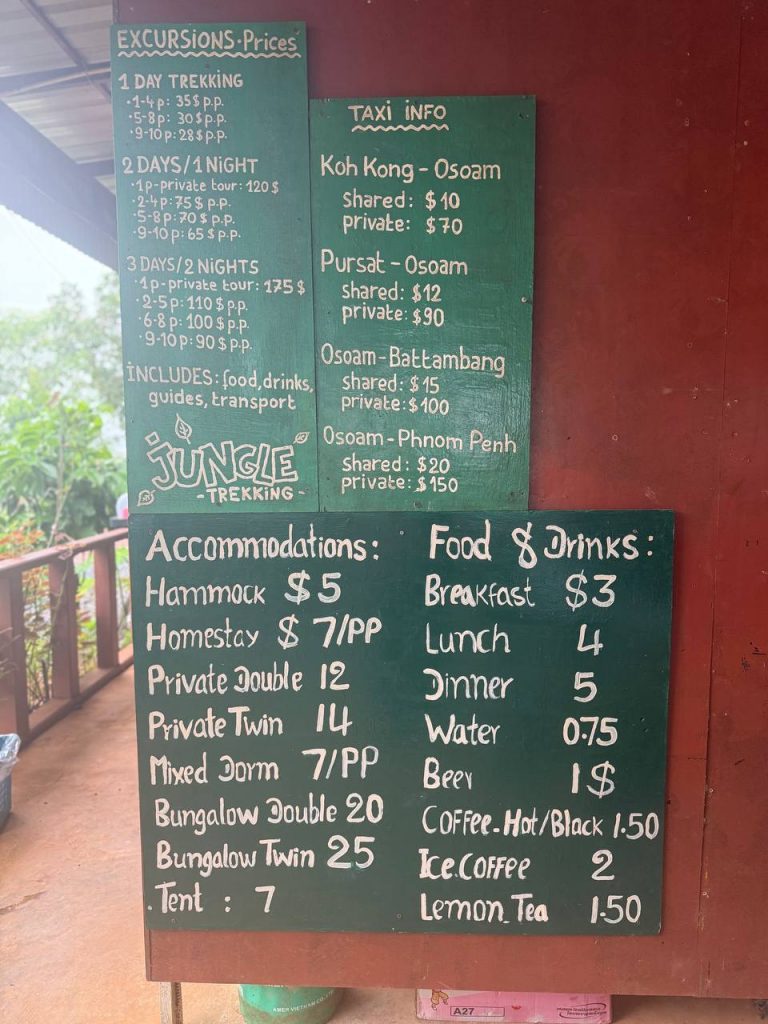 EXCURSIONS · Prices
1 DAY TREKKING
· 1-4 p: 35$ p.p.
· 5-8 p: 30$ p.p.
· 9-10 p: 28$ p.p.
2 DAYS/1 NIGHT
· 1 p - private tour: 120 $
· 2-4 p: 75 $ p.p.
· 5-8 p: 70 $ p.p.
· 9-10 p: 65 $ p.p.
3 DAYS/2 NIGHTS
· 1 p - private tour: 175 $
· 2-5 p: 110 $ p.p.
· 6-8 p: 100 $ p.p.
· 9-10 p: 90 $ p.p.
INCLUDES: food, drinks,
guides, transport
JUNGLE
- TREKKING -
TAXI INFO
Koh Kong - Osoam
shared: $ 10
private: $70
Pursat - Osoam
shared: $12
private: $90
Osoam - Battambang
shared: $ 15
private: $ 100
Osoam - Phnom Penh
shared: $20
private: $150
Accommodations:
Hammock $5
Homestay $ 7/PP
Private Double 12
Private Twin 14
Mixed Dorm 7/PP
Bungalow Double 20
Bungalow Twin 25
. Tent : 7
Food & Drinks:
Breakfast $3
Lunch 4
Dinner 5
Water 0.75
Beer 1$
Coffee. Hot/Black 1.50
Ice. Coffee 2
Lemon_Tea 1.50
A27